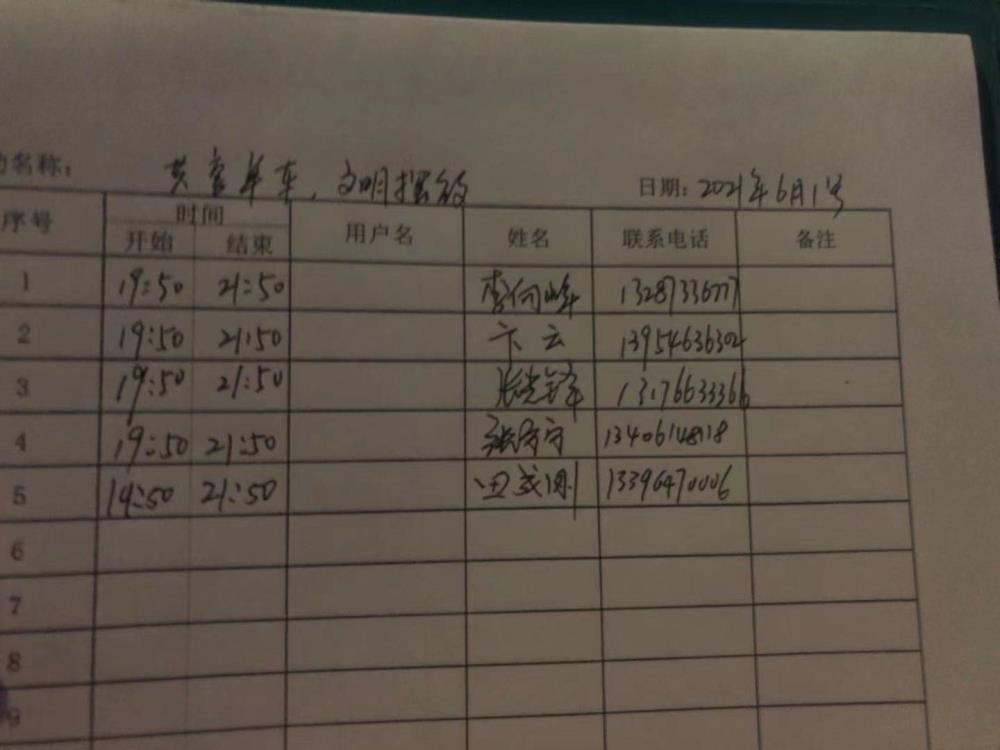 名称： 共享单车，文明摆放 日期：2021年6月1号
序号 时间 用户名 姓名 联系电话 备注
开始 结束
1 19:50 21:50 李向峰 13287336777
2 19:50 21:50 卞云 13954636302
3 19:50 21:50 张光锋 13176633366
4 19:50 21:50 张 13406148118
5 19:50 21:50 田成刚 13396470006
6
7
8
9